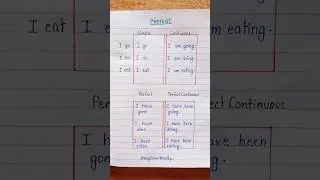 Present
Simple Continuous
I go I go I am going
I do I do I am doing
I eat I eat I am eating.
Perfect Perfect Continuous
I have gone I have been going.
I have done I have been doing.
I have eaten I have been eating
I eat
eating.
Perf
ect Continuous
I h
gon
have been
g.